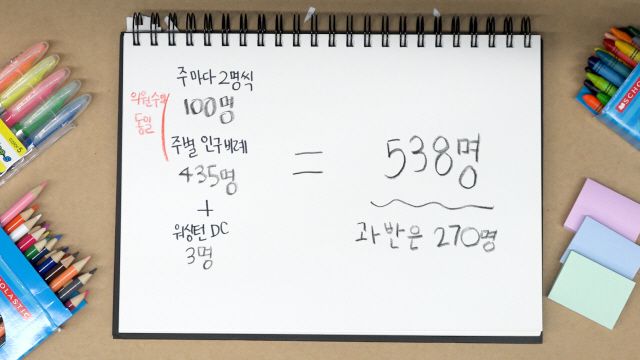 주마다 2명씩
100명
의원수와
동일
주별 인구비례
435명
+
워싱턴 DC
3명
=
538명
과반은 270명
SCHOLASTIC